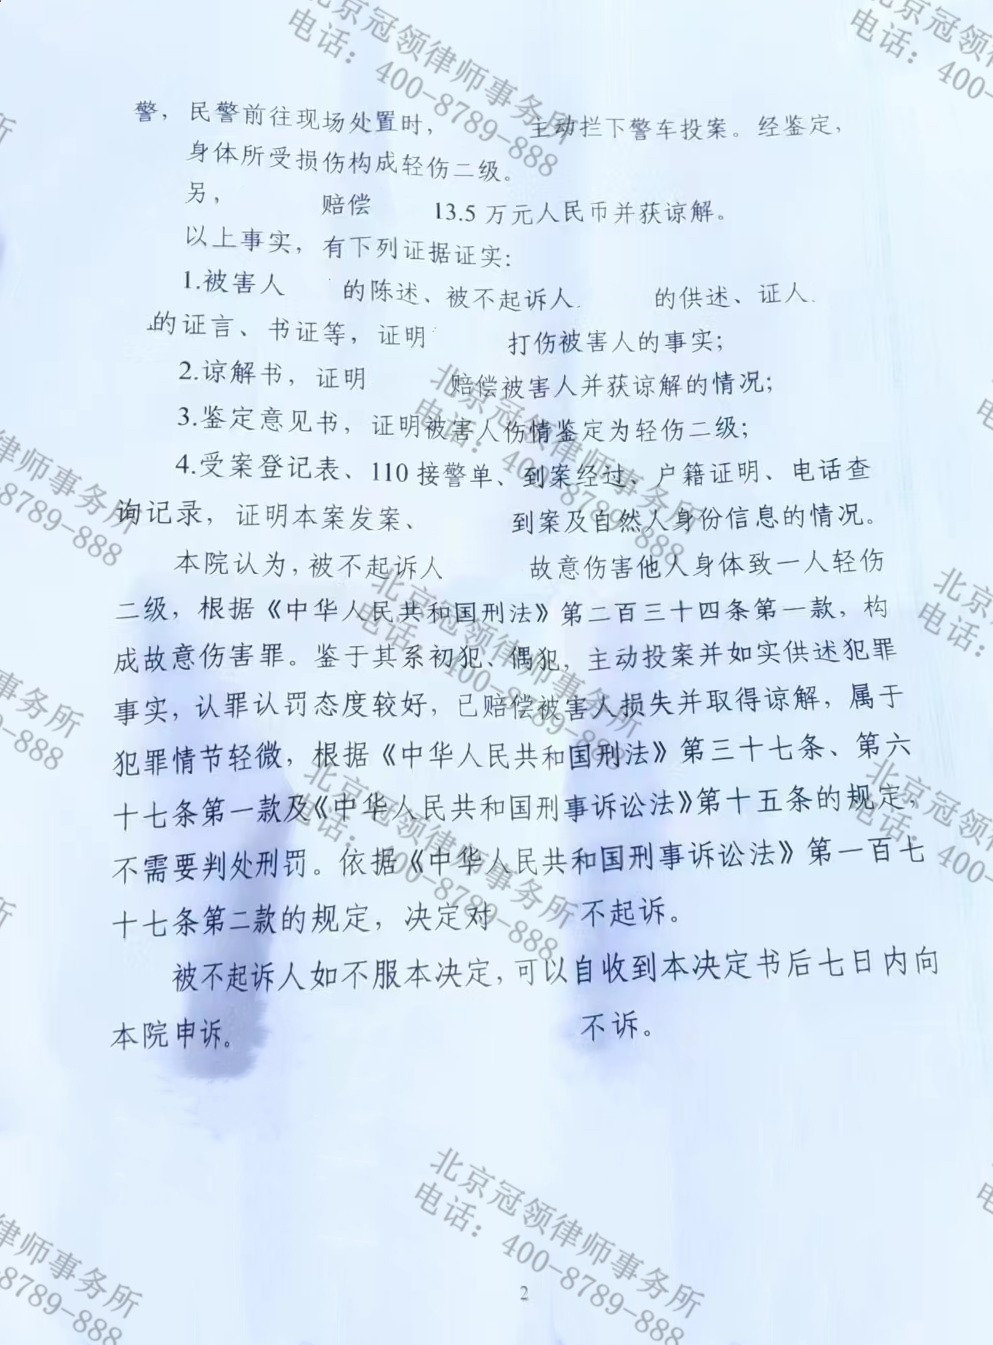 警，民警前往现场处置时， 主动拦下警车投案。经鉴定，
身体所受损伤构成轻伤二级。
另， 赔偿 13.5 万元人民币并获谅解。
以上事实，有下列证据证实：
1.被害人 的陈述、被不起诉人 的供述、证人
的证言、书证等，证明 打伤被害人的事实；
2.谅解书，证明 赔偿被害人并获谅解的情况；
3.鉴定意见书，证明被害人伤情鉴定为轻伤二级；
4.受案登记表、110 接警单、到案经过、户籍证明、电话查
询记录，证明本案发案、 到案及自然人身份信息的情况。
本院认为，被不起诉人 故意伤害他人身体致一人轻伤
二级，根据《中华人民共和国刑法》第二百三十四条第一款，构
成故意伤害罪。鉴于其系初犯、偶犯，主动投案并如实供述犯罪
事实，认罪认罚态度较好，已赔偿被害人损失并取得谅解，属于
犯罪情节轻微，根据《中华人民共和国刑法》第三十七条、第六
十七条第一款及《中华人民共和国刑事诉讼法》第十五条的规定，
不需要判处刑罚。依据《中华人民共和国刑事诉讼法》第一百七
十七条第二款的规定，决定对 不起诉。
被不起诉人如不服本决定，可以自收到本决定书后七日内向
本院申诉。 不诉。
2
北京冠领律师事务所
电话：400-8789-888